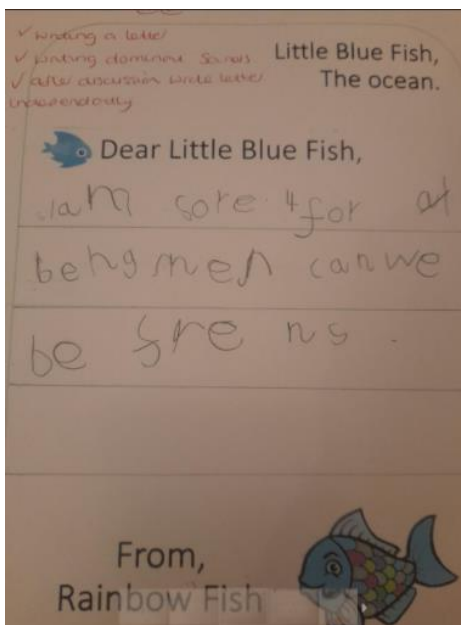 ✓ writing a letter
✓ writing dominant sounds
✓ after discussion write letter
independently
Little Blue Fish,
The ocean.
Dear Little Blue Fish,
iam sore for
beng men can we
be frens.
From,
Rainbow Fish